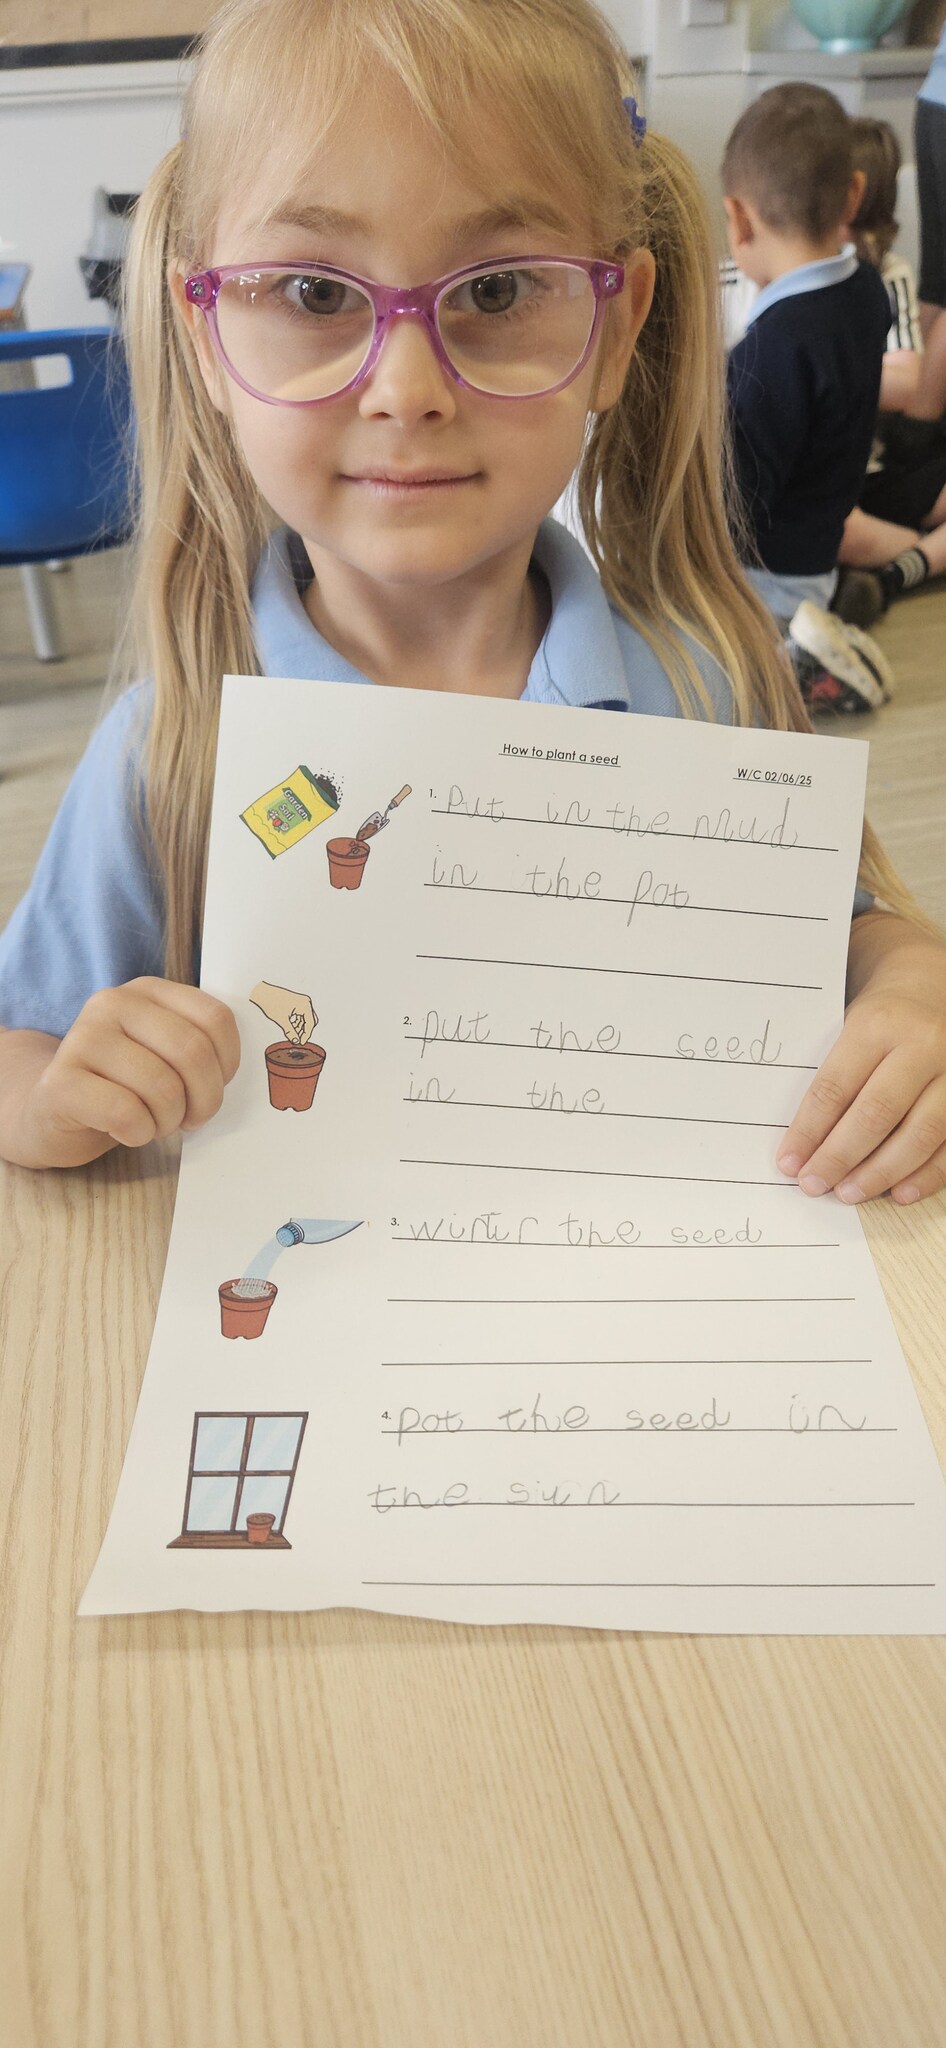 How to plant a seed
W/C 02/06/25
Garden Soil
1. Put in the mud
in the pot
2. put the seed
in the
3. wintir the seed
4. pot the seed in
the sun